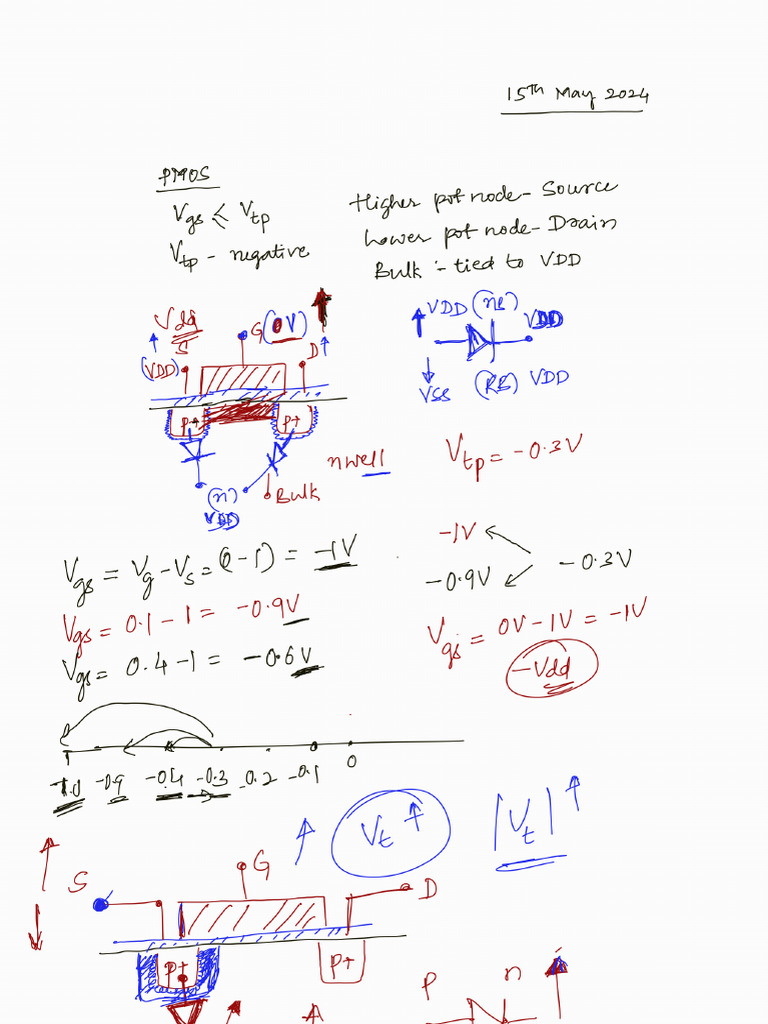 15th May 2024
PMOS
Vgs < Vtp
Vtp - negative
Higher pot node - Source
Lower pot node - Drain
Bulk :- tied to VDD
Vdd
S
(VDD)
G (0V)
D
p+
p+
(n)
VDD
nwell
Bulk
VDD
VDD
VSS
VDD
Vtp = -0.3V
Vgs = Vg - Vs = (0 - 1) = -1V
Vgs = 0.1 - 1 = -0.9V
Vgs = 0.4 - 1 = -0.6V
-1V
-0.9V
-0.3V
Vgs = 0V - 1V = -1V
-Vdd
-1.0 -0.9 -0.4 -0.3 -0.2 -0.1 0
Vt ↑
|Vt| ↑
S
G
D
p+
p+
P n